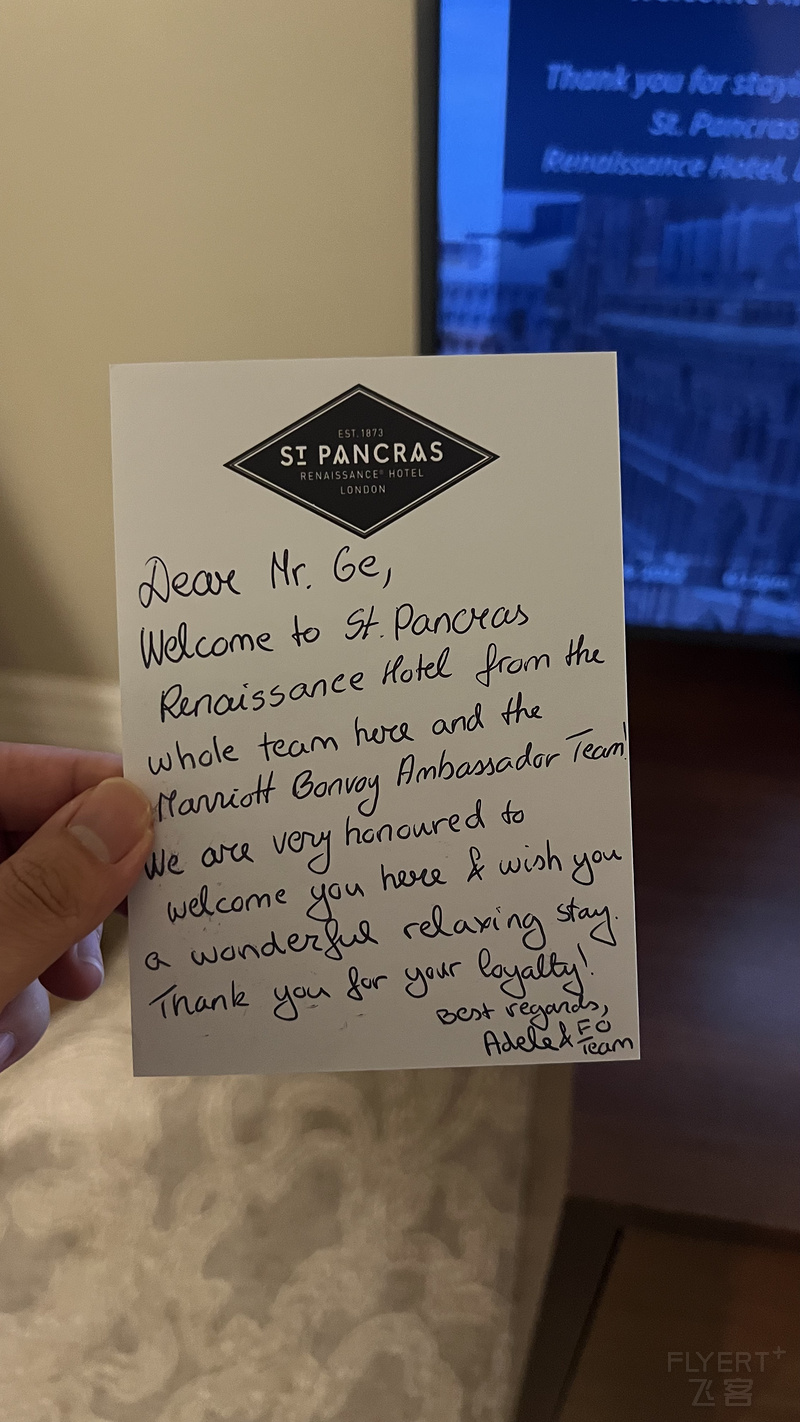 Thank you for
St. Pancras
Renaissance Hotel,
EST. 1873
ST PANCRAS
RENAISSANCE® HOTEL
LONDON
Dear Mr. Ge,
Welcome to St. Pancras
Renaissance Hotel from the
whole team here and the
Marriott Bonvoy Ambassador Team!
We are very honoured to
welcome you here & wish you
a wonderful relaxing stay.
Thank you for your loyalty!
Best regards,
Adele & FO
Team
FLYERT+
飞客